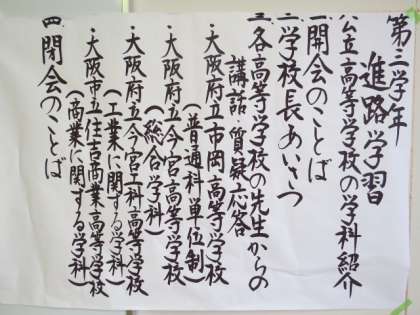 第三学年
進路学習
公立高等学校の学科紹介
一開会のことば
二学校長あいさつ
三各高等学校の先生からの
講話・質疑応答
・大阪府立市岡高等学校
(普通科単位制)
・大阪府立今宮高等学校
(総合学科)
・大阪府立今宮工科高等学校
(工業に関する学科)
・大阪市立住吉商業高等学校
(商業に関する学科)
四閉会のことば